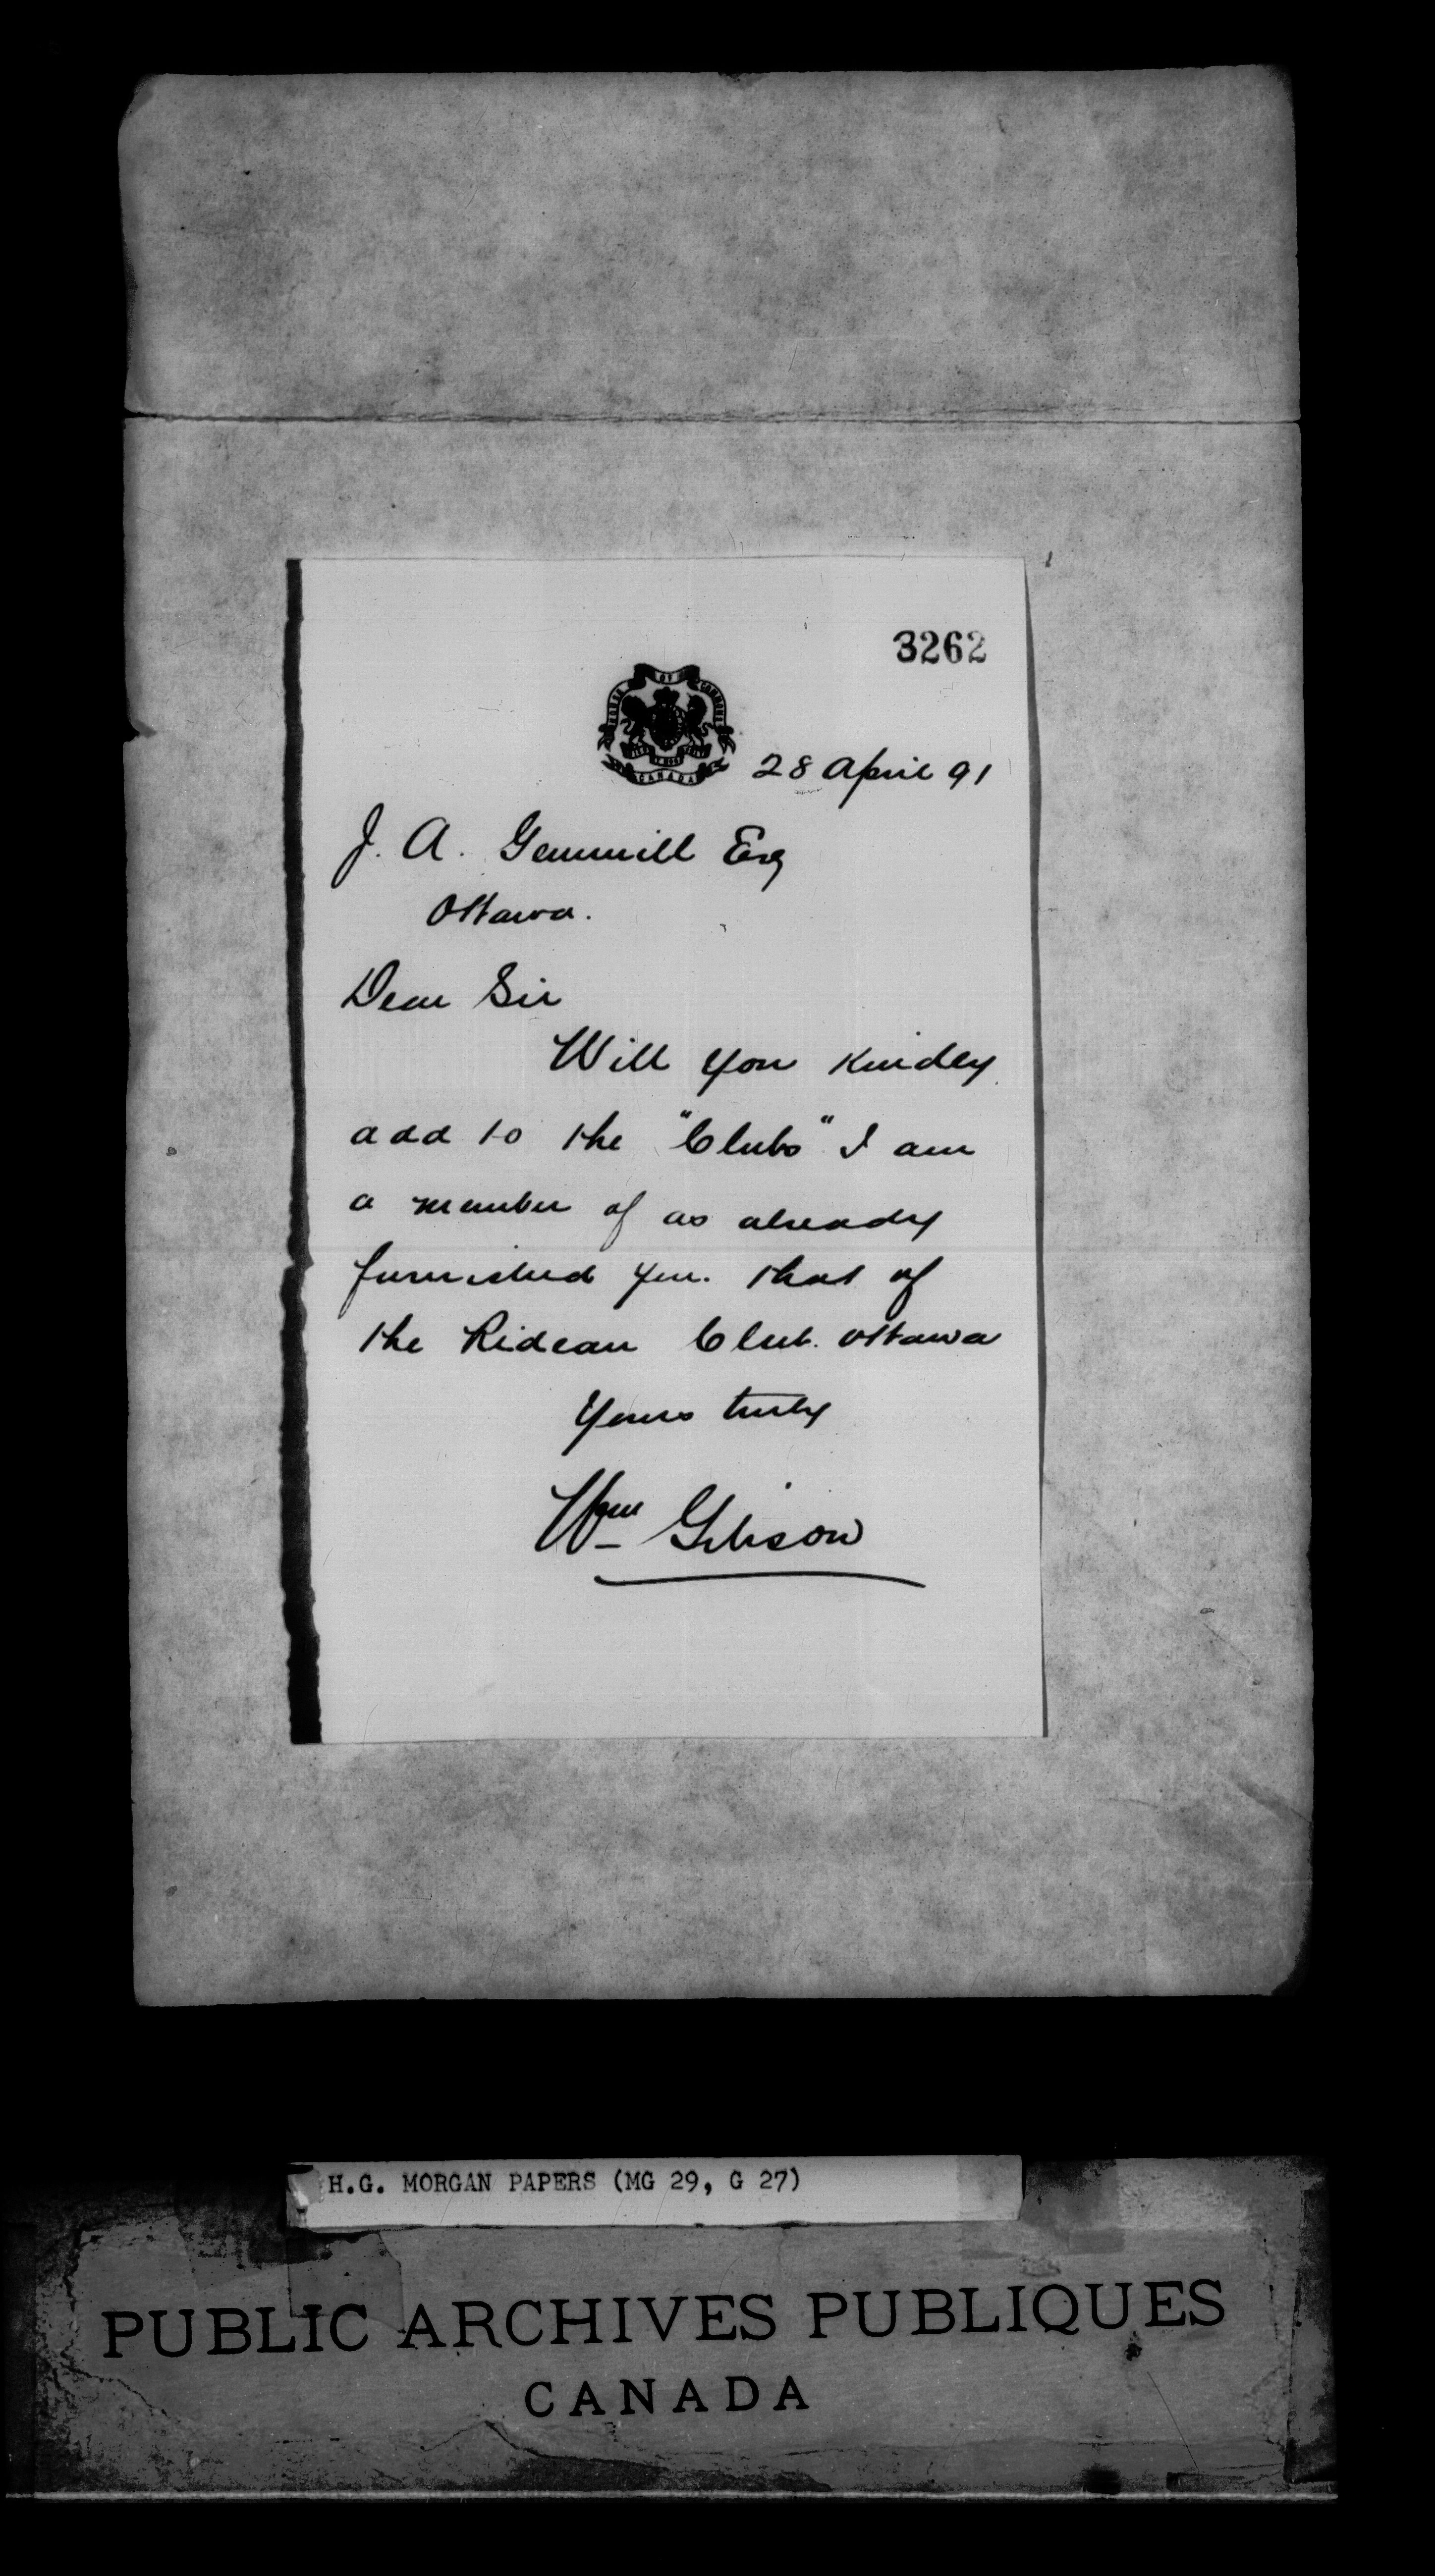 3262
HOUSE OF COMMONS
CANADA
28 April 91
J. A. Gemmill Esq
Ottawa.
Dear Sir
Will you kindly
add to the "Clubs" I am
a member of as already
furnished you. that of
the Rideau Club. Ottawa
Yours truly
Wm Gibson
H.G. MORGAN PAPERS (MG 29, G 27)
PUBLIC ARCHIVES PUBLIQUES
CANADA